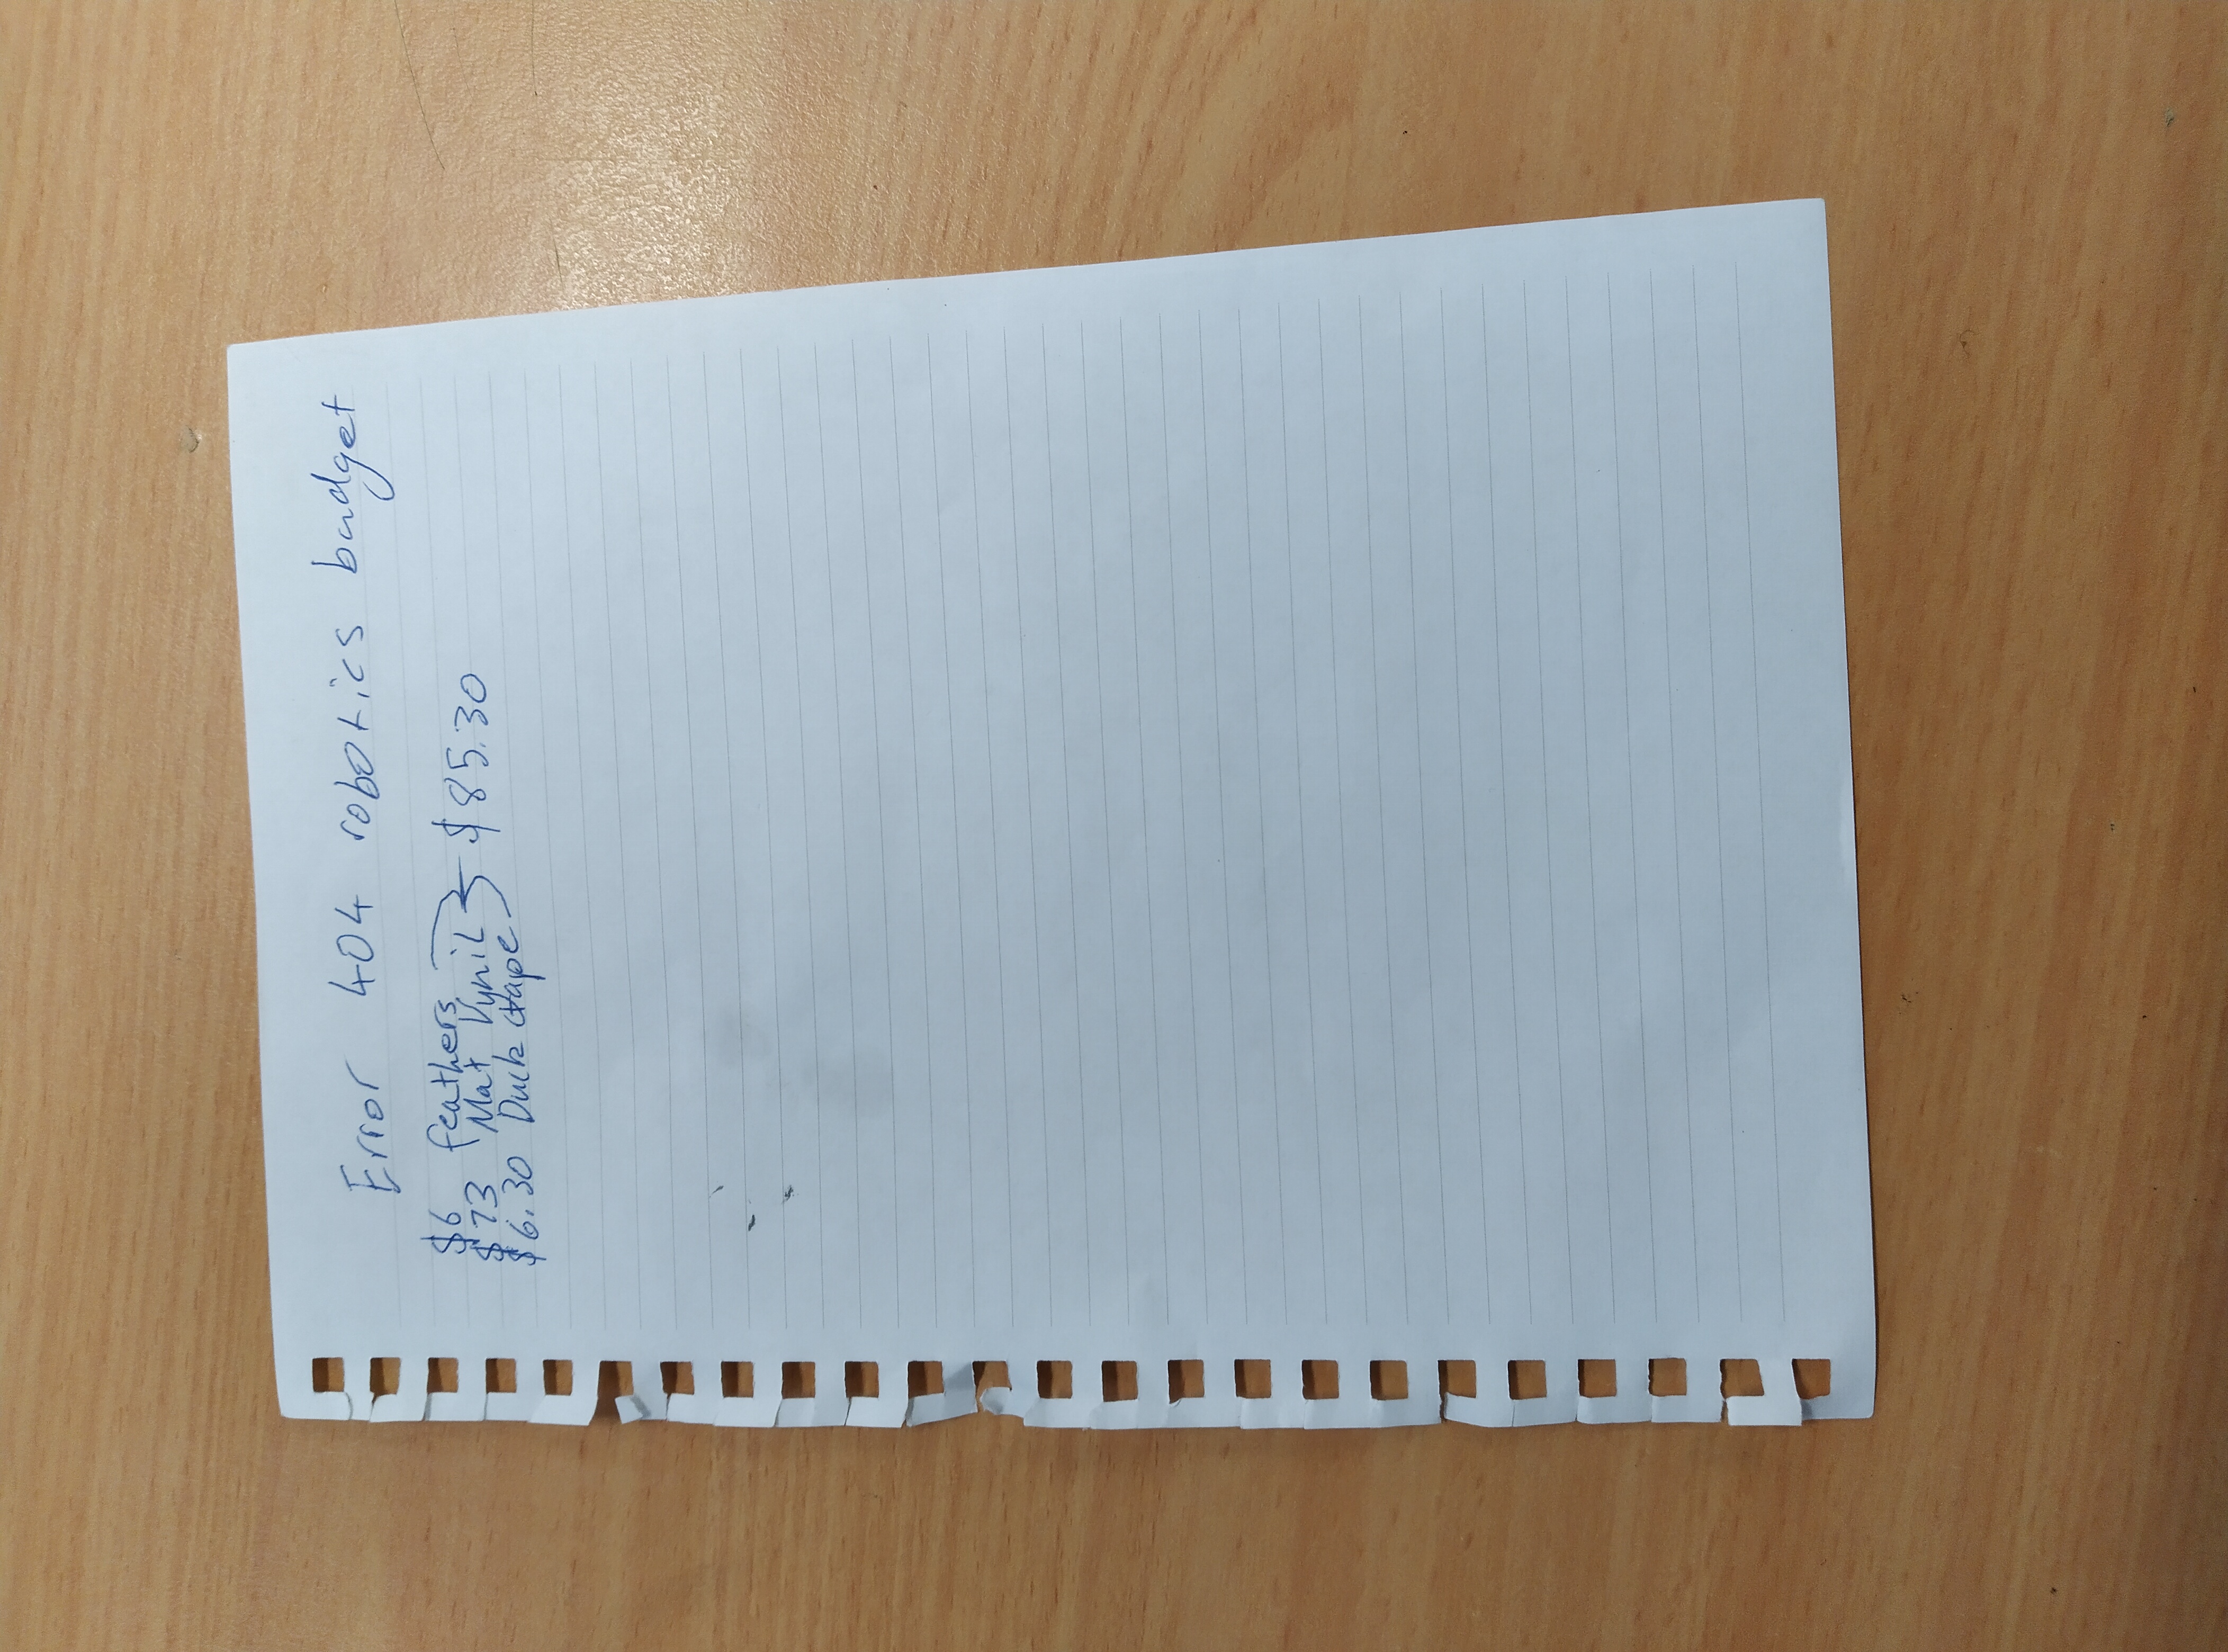 Error 404 robotics budget
$6 feathers
$73 Mat Vynil
$6.30 Duck tape
$85.30